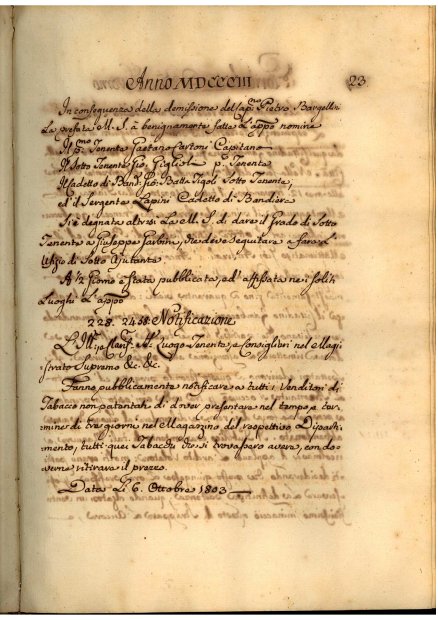 Anno MDCCCIII 23
In conseguenza della demissione del Cap.no Pietro Bargellini
La prefata M. S. à benignamente fatte L'appo nomine
Il p.mo Tenente Gaetano Cartoni Capitano
Il Sotto Tenente Gio. Giglioli p.o Tenente
Il Cadetto di Band. Gio: Batta Tigoli Sotto Tenente,
ed il Sergente Lapini Cadetto di Bandiera
Si è degnata altresì La M. S. di dare il Grado di Sotto
Tenente a Giuseppe Garbini, che deve seguitare a fare L'
Ufizio di Sotto Ajutante.
A 12 Giorno è stata pubblicata, ed affissata nei soliti
Luoghi L'appo
228. 2458. Notificazione
L'Ill: e Clariss. Luogo Tenente, e Consiglieri nel Magi
strato Supremo &c. &c.
Fanno pubblicamente notificare a tutti i Venditori di
Tabacco non patentati di dover presentare nel tempo, e ter,
mine di tre giorni nel Magazzino del respettivo Diparti,
mento, tutti quei Tabacchi che si trovassero avere, con do,
verne ritirare il prezzo.
Data Li 6. Ottobre 1803